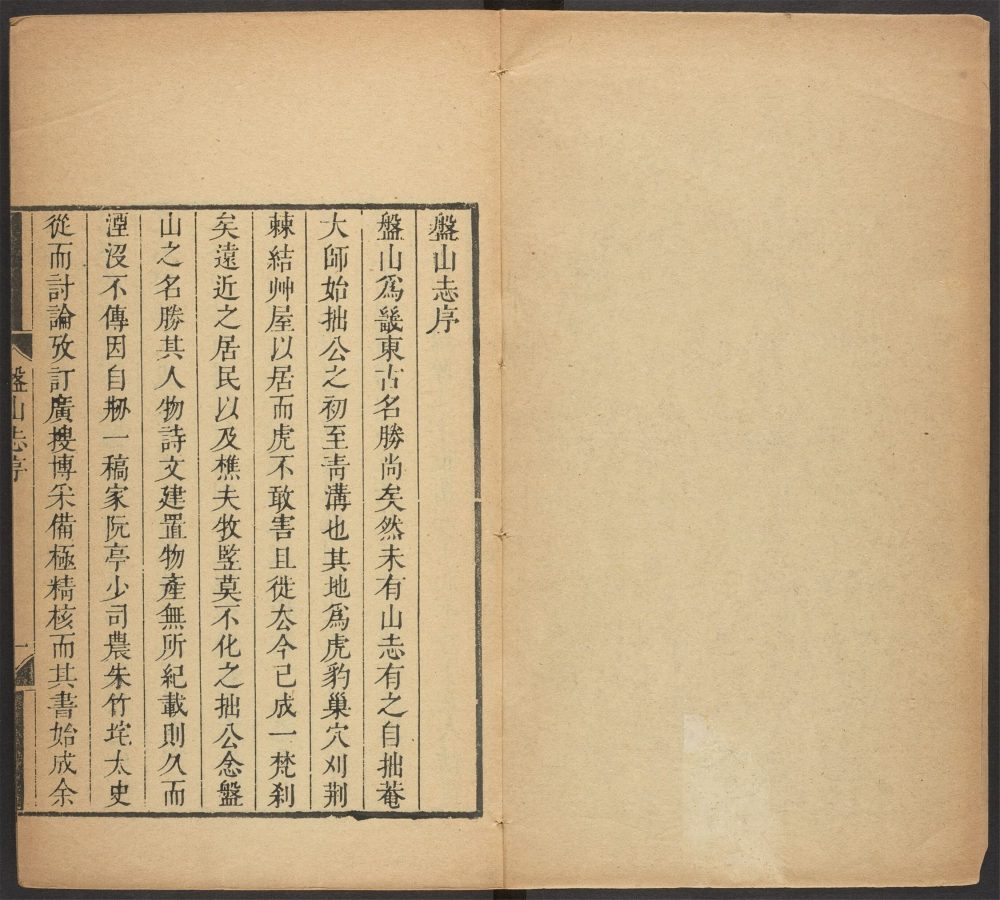 盤山志序
盤山爲畿東古名勝尚矣然未有山志有之自拙菴
大師始拙公之初至青溝也其地爲虎豹巢穴刈荆
棘結艸屋以居而虎不敢害且徙去今已成一梵刹
矣遠近之居民以及樵夫牧竪莫不化之拙公念盤
山之名勝其人物詩文建置物產無所紀載則久而
湮沒不傳因自刱一稿家阮亭少司農朱竹垞太史
從而討論攷訂廣搜博采備極精核而其書始成余
盤山志序
一